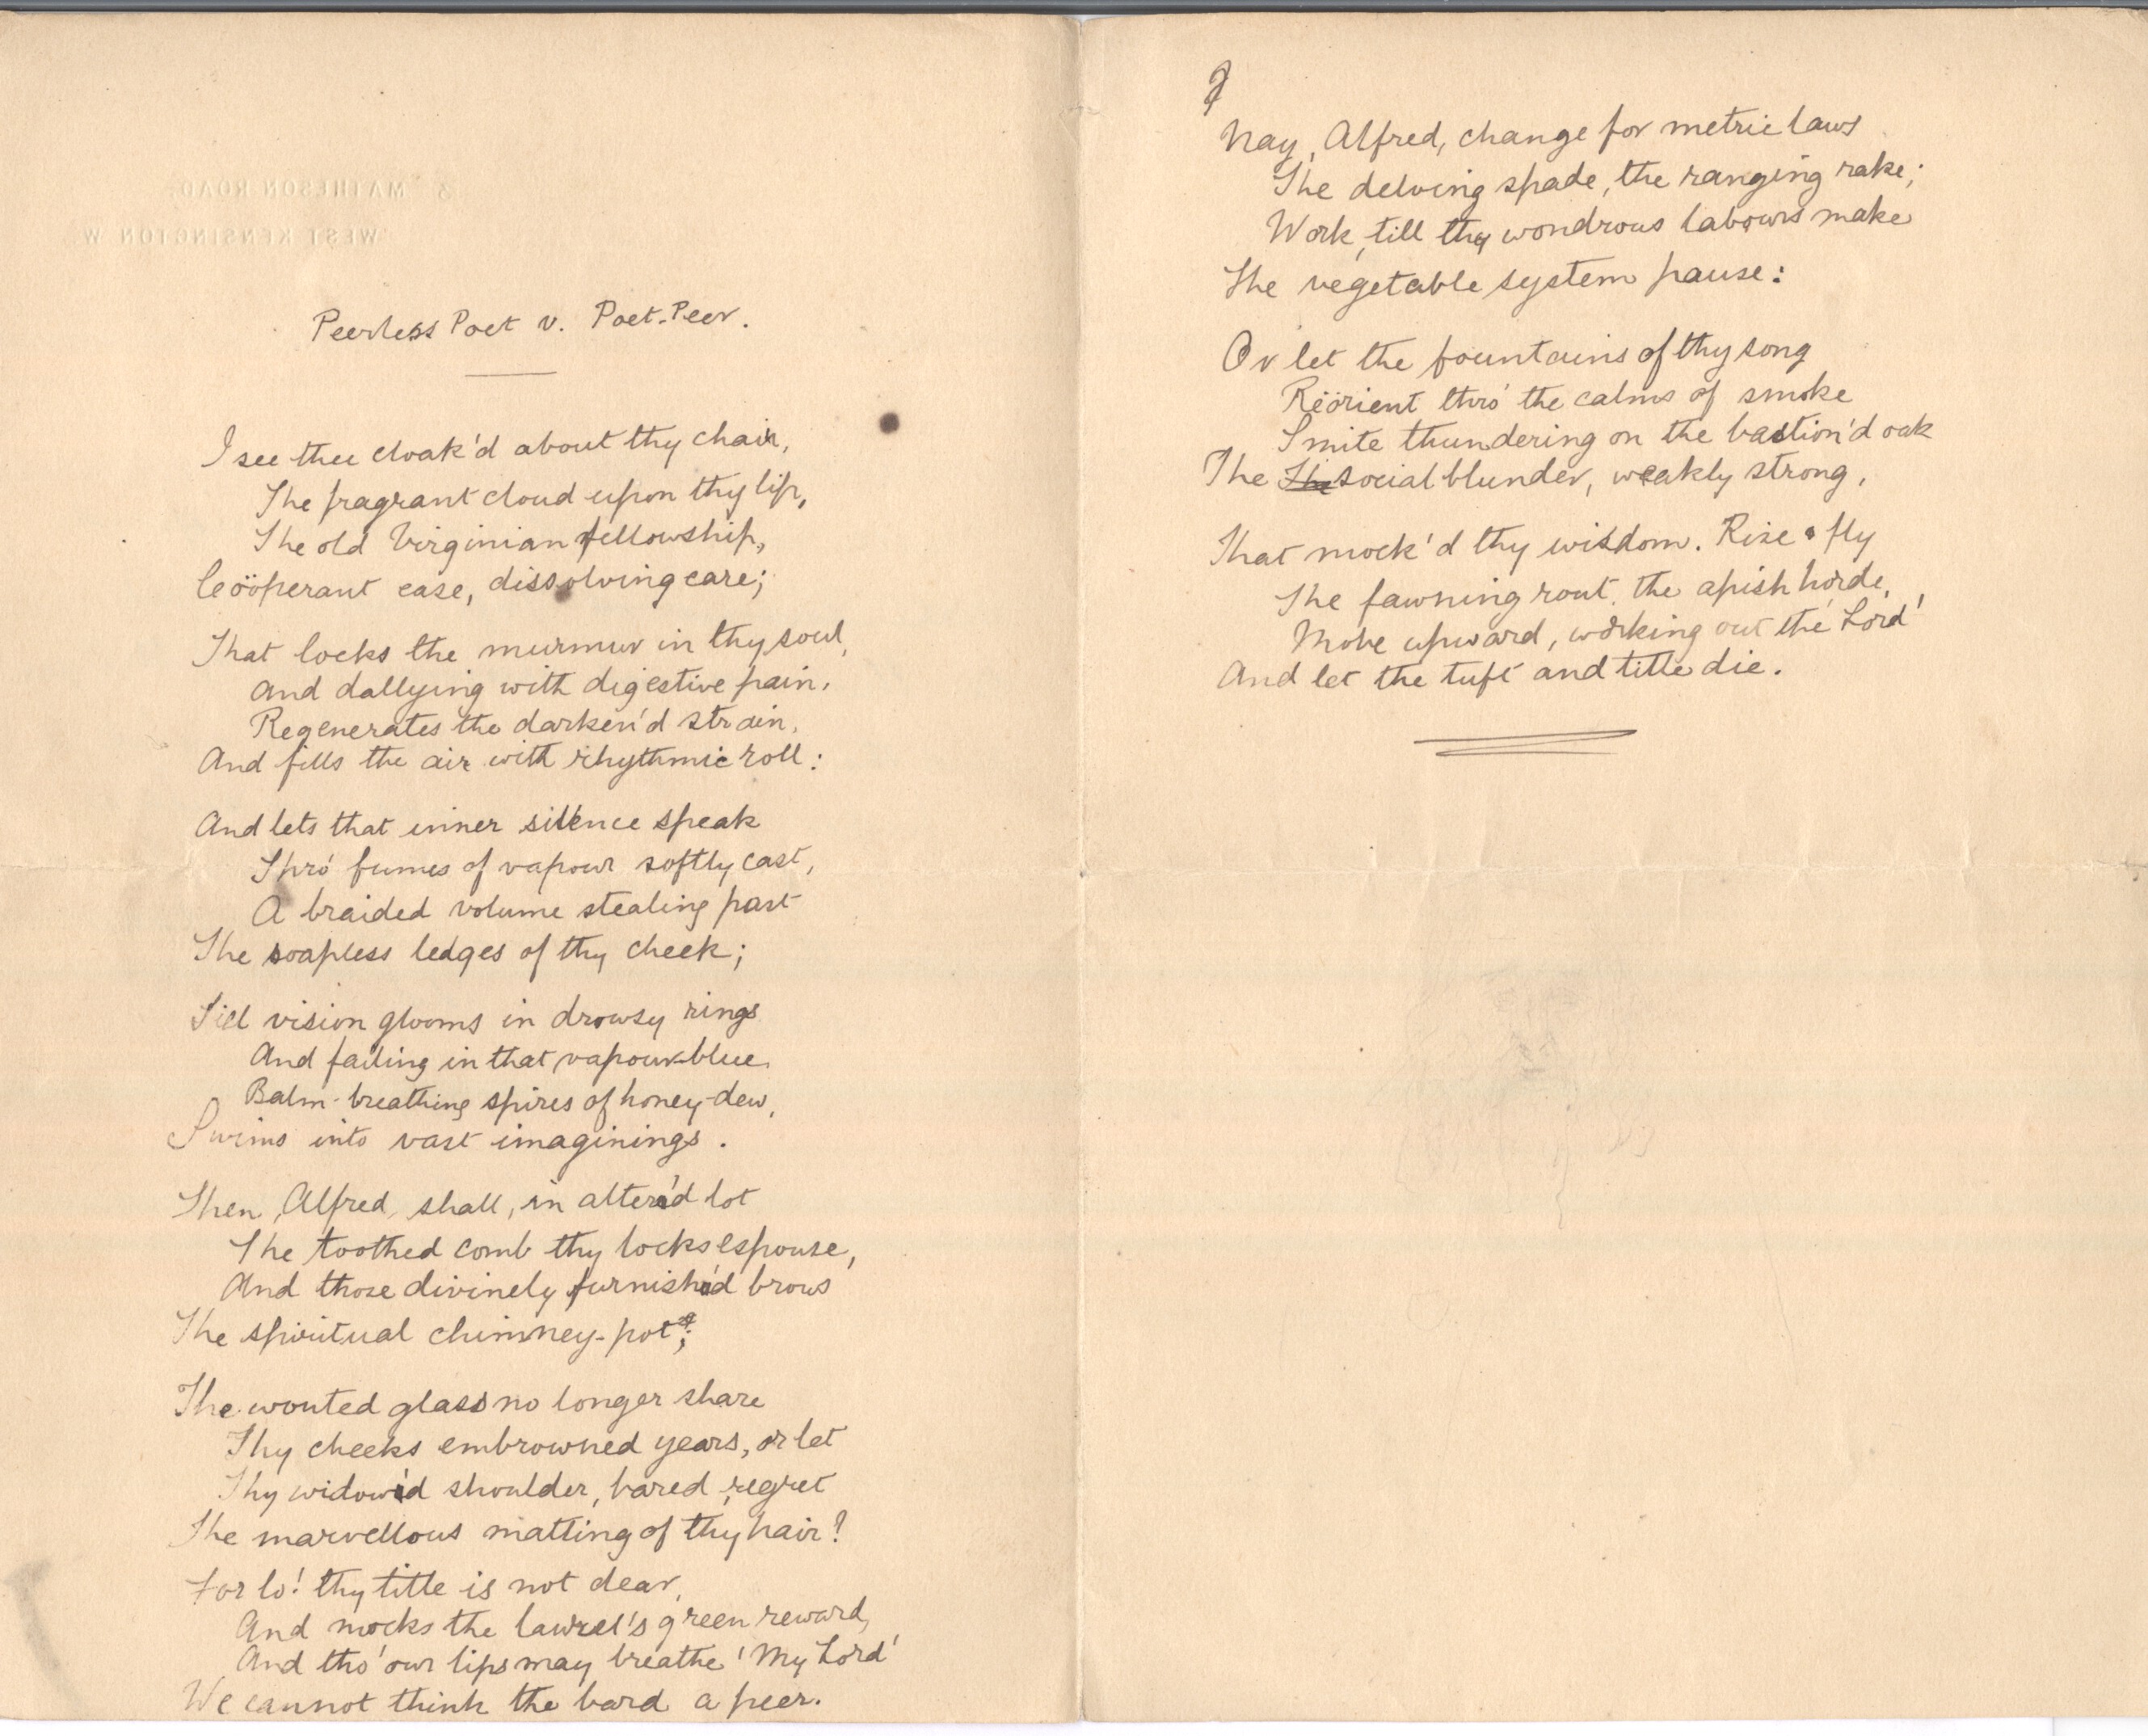 3 MATHESON ROAD
WEST KENSINGTON W
Peerless Poet v. Poet-Peer.
I see thee cloak'd about thy chair,
The fragrant cloud upon thy lip,
The old Virginian fellowship,
Coöperant ease, dissolving care;
That locks the murmur in thy soul,
And dallying with digestive pain,
Regenerates the darken'd strain,
And fills the air with rhythmic roll:
And lets that inner silence speak
Thro' fumes of vapour softly cast,
A braided volume stealing past
The soapless ledges of thy cheek;
Till vision glooms in drowsy rings
And failing in that vapour-blue
Balm-breathing spires of honey-dew,
Swims into vast imaginings.
Then, Alfred, shall, in alter'd lot
The toothed comb thy locks espouse,
And those divinely furnish'd brows
The spiritual chimney-pot;
The wonted glass no longer share
Thy cheeks embrowned years, or let
Thy widow'd shoulder, bared, regret
The marvellous matting of thy hair?
For lo! thy title is not dear,
And mocks the laurel's green reward,
And tho' our lips may breathe 'My Lord'
We cannot think the bard a peer.
2
Nay, Alfred, change for metric laws
The delving spade, the ranging rake;
Work, till thy wondrous labours make
The vegetable system pause:
Or let the fountains of thy song
Reörient thro' the calms of smoke
Smite thundering on the bastion'd oak
The The social blunder, weakly strong,
That mock'd thy wisdom. Rise & fly
The fawning rout, the apish horde,
Move upward, working out the 'Lord'
And let the tuft and title die.